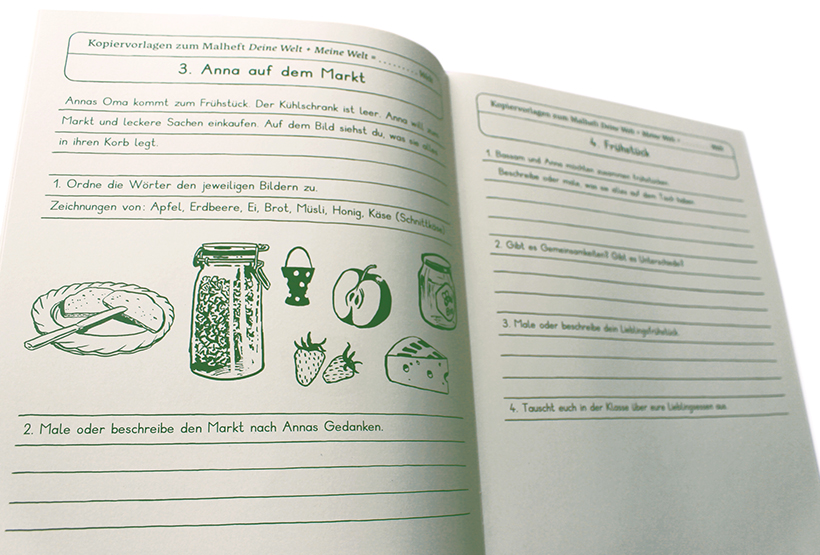 Kopiervorlagen zum Malheft Deine Welt • Meine Welt •
3. Anna auf dem Markt
Annas Oma kommt zum Frühstück. Der Kühlschrank ist leer. Anna will zum
Markt und leckere Sachen einkaufen. Auf dem Bild siehst du, was sie alles
in ihren Korb legt.
1. Ordne die Wörter den jeweiligen Bildern zu.
Zeichnungen von: Apfel, Erdbeere, Ei, Brot, Müsli, Honig, Käse (Schnittkäse)
2. Male oder beschreibe den Markt nach Annas Gedanken.
Kopiervorlagen zum Malheft Deine Welt • Meine Welt •
4. Frühstück
1. Bassam und Anna möchten zusammen frühstücken.
Beschreibe oder male, was sie alles auf dem Tisch haben.
2. Gibt es Gemeinsamkeiten? Gibt es Unterschiede?
3. Male oder beschreibe dein Lieblingsfrühstück.
4. Tauscht euch in der Klasse über eure Lieblingsessen aus.